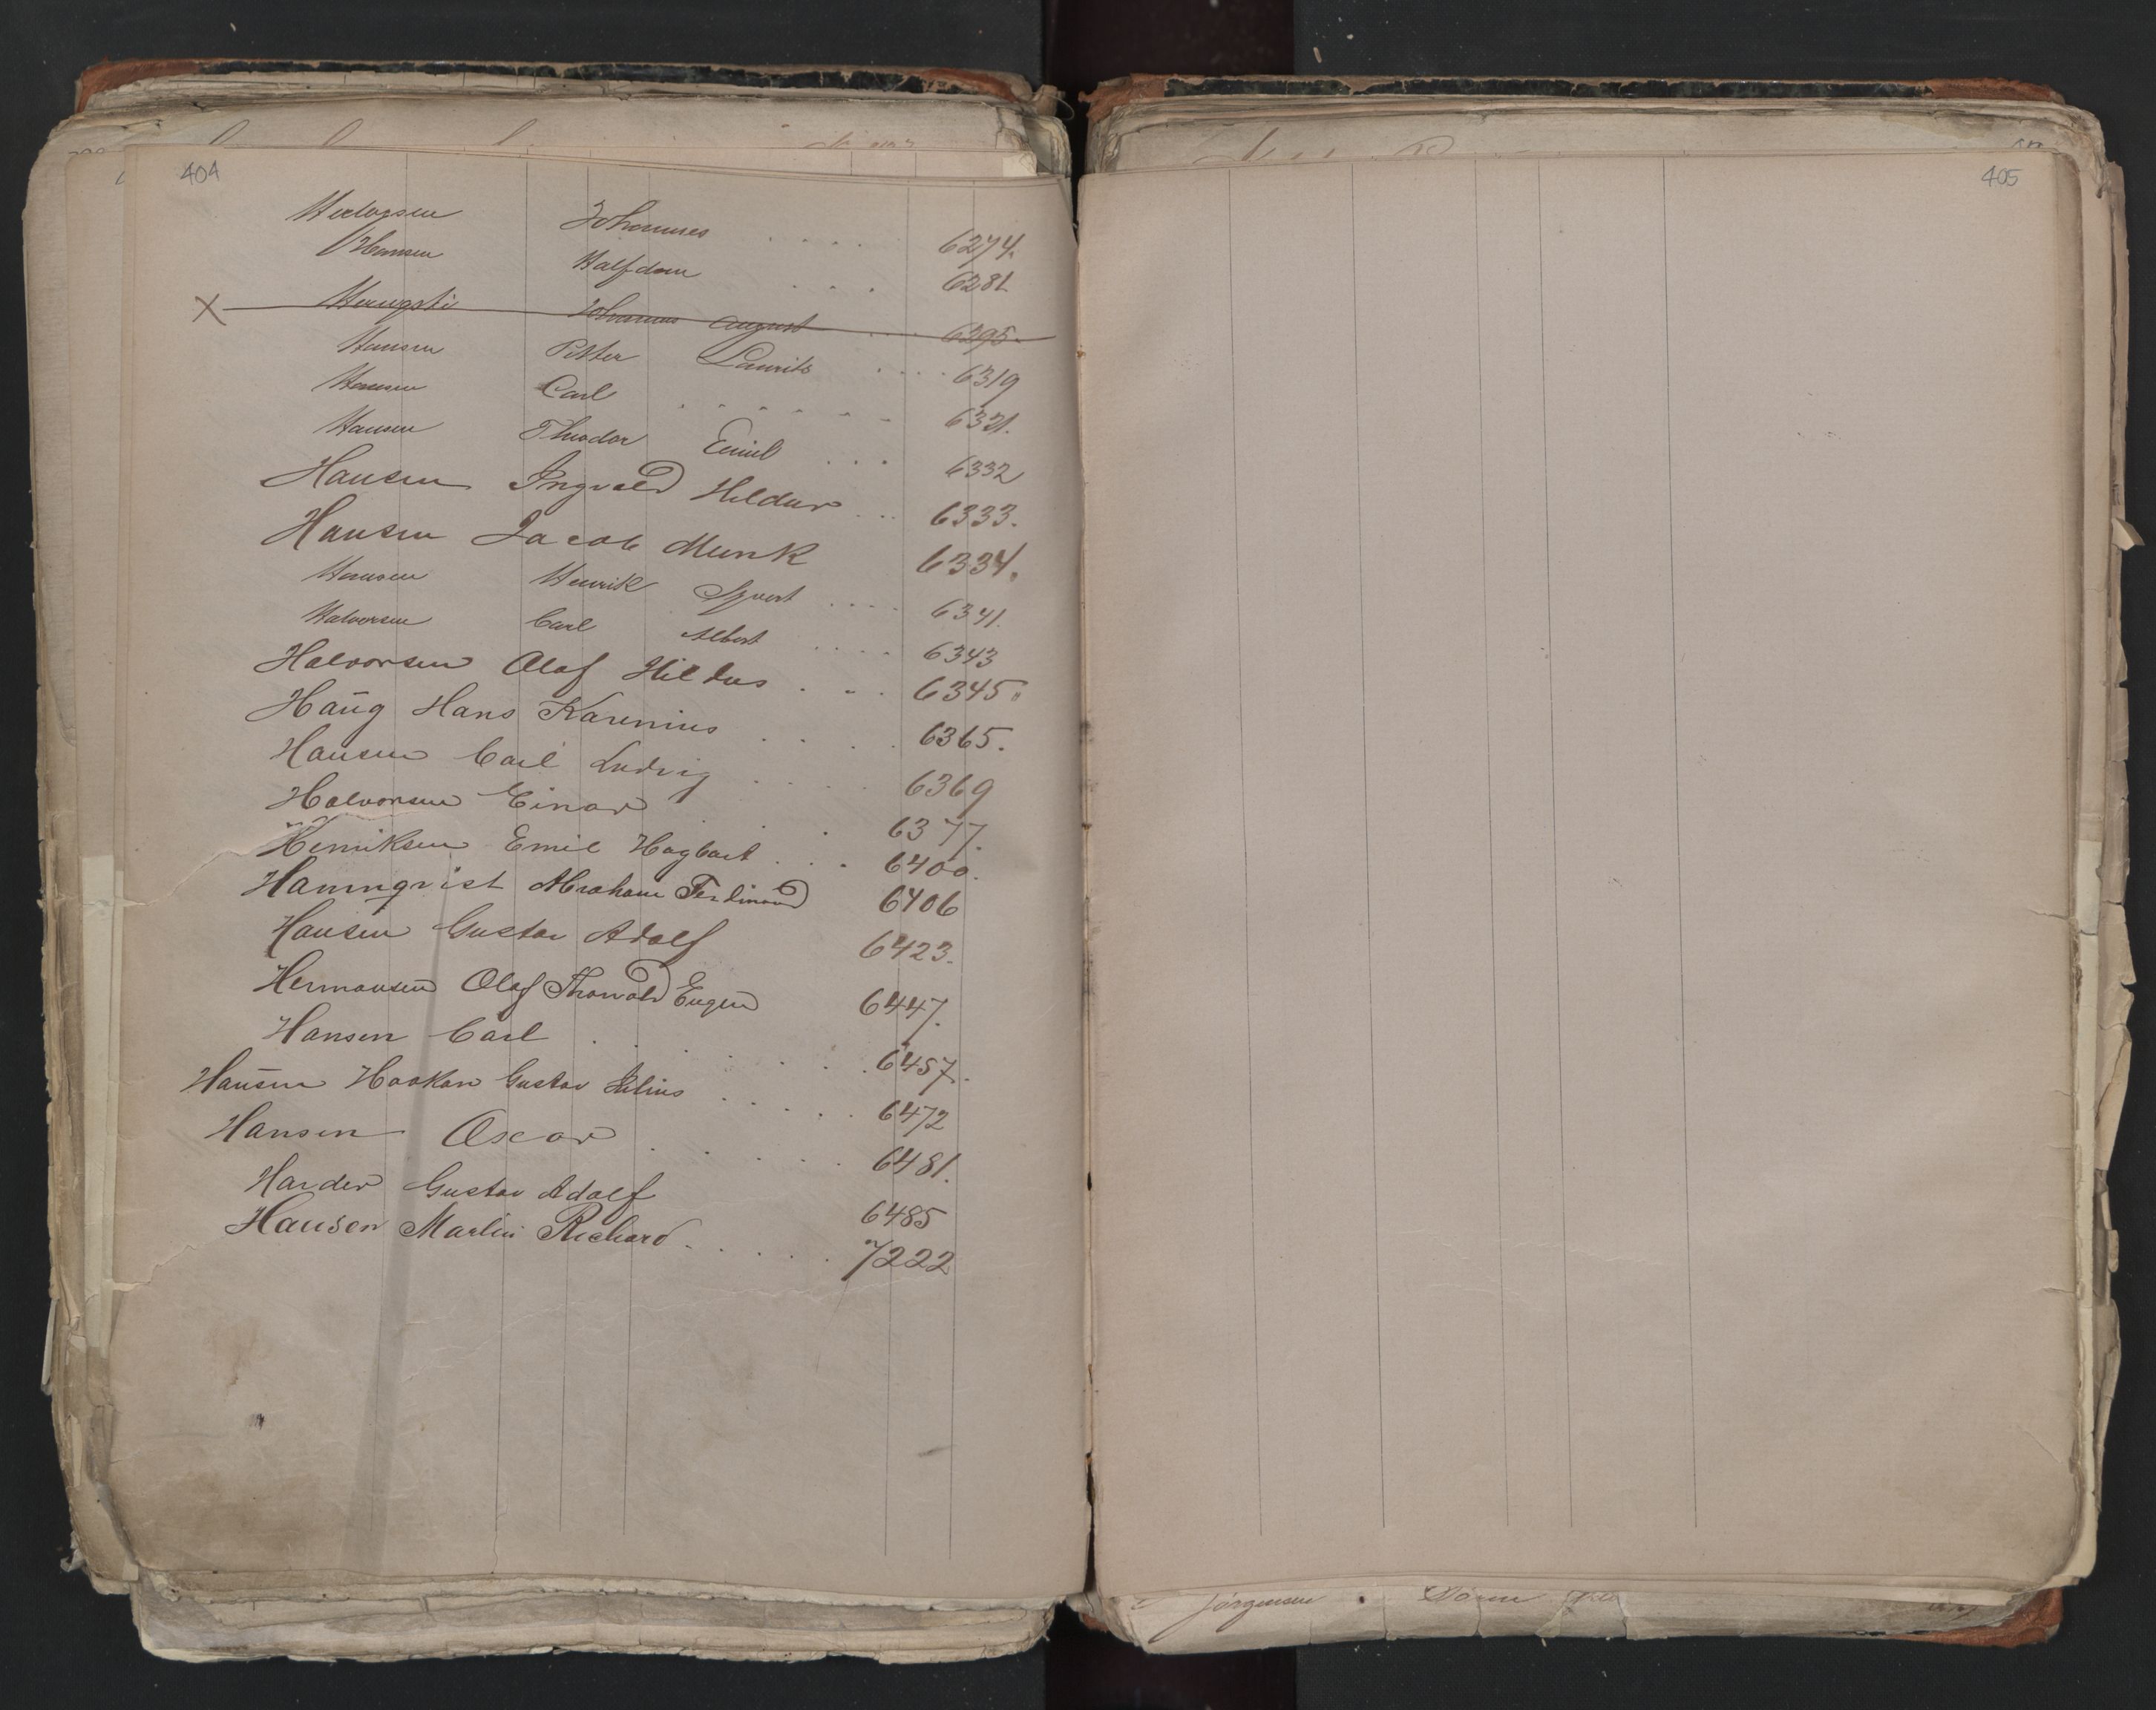 404
Johannes . . . . 6274.
Hansen Halfdan . . . 6281
X Johannes August . . . 6295.
Hansen Petter Laurits . . . . 6319
Hansen Carl . . . . . . 6321.
Hansen Theodor Emil . . . 6332
Hansen Ingvald Hildur . . . 6333.
Hansen Jacob Munk 6334.
Hansen Henrik . . . . 6341.
Halvorsen Carl Albert . . . . 6343
Halvorsen Olaf Hildus . . . 6345.
Haŭg Hans Karenius . . . . 6365.
Hansen Carl Ludvig . . . . 6369
Halvorsen Einar . . . 6377.
Henriksen Emil Hagbart . . . 6400.
Hammqvist Abraham Ferdinand 6406
Hansen Gustav Adolf 6423.
Hermansen Olaf Thorvald Eugen 6447.
Hansen Carl . . . . . . . 6457.
Hansen Haakon Gustav Julius . . . . . 6472
Hansen Oscar . . . . . . 6481.
Harder Gustav Adolf 6485
Hansen Martin Richard . . . . . 7222
405
Jørgensen